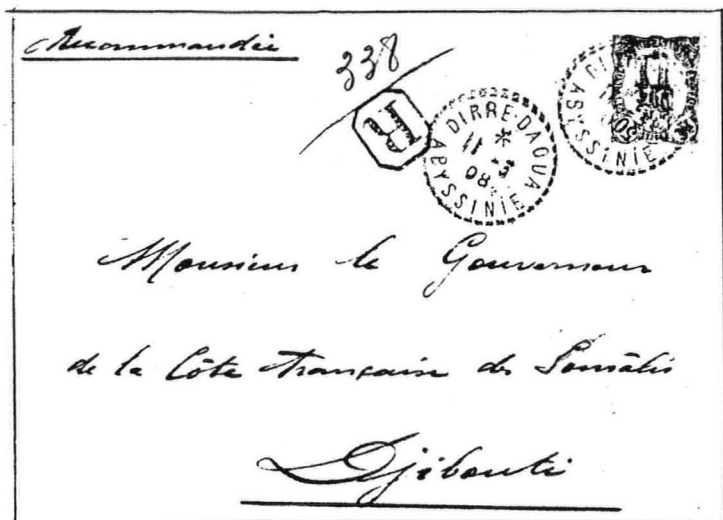 Recommandée
338
R
DIRRE-DAOUA
* 11 5 08
ABYSSINIE
ABYSSINIE
Monsieur le Gouverneur
de la Côte Française des Somalis
Djibouti